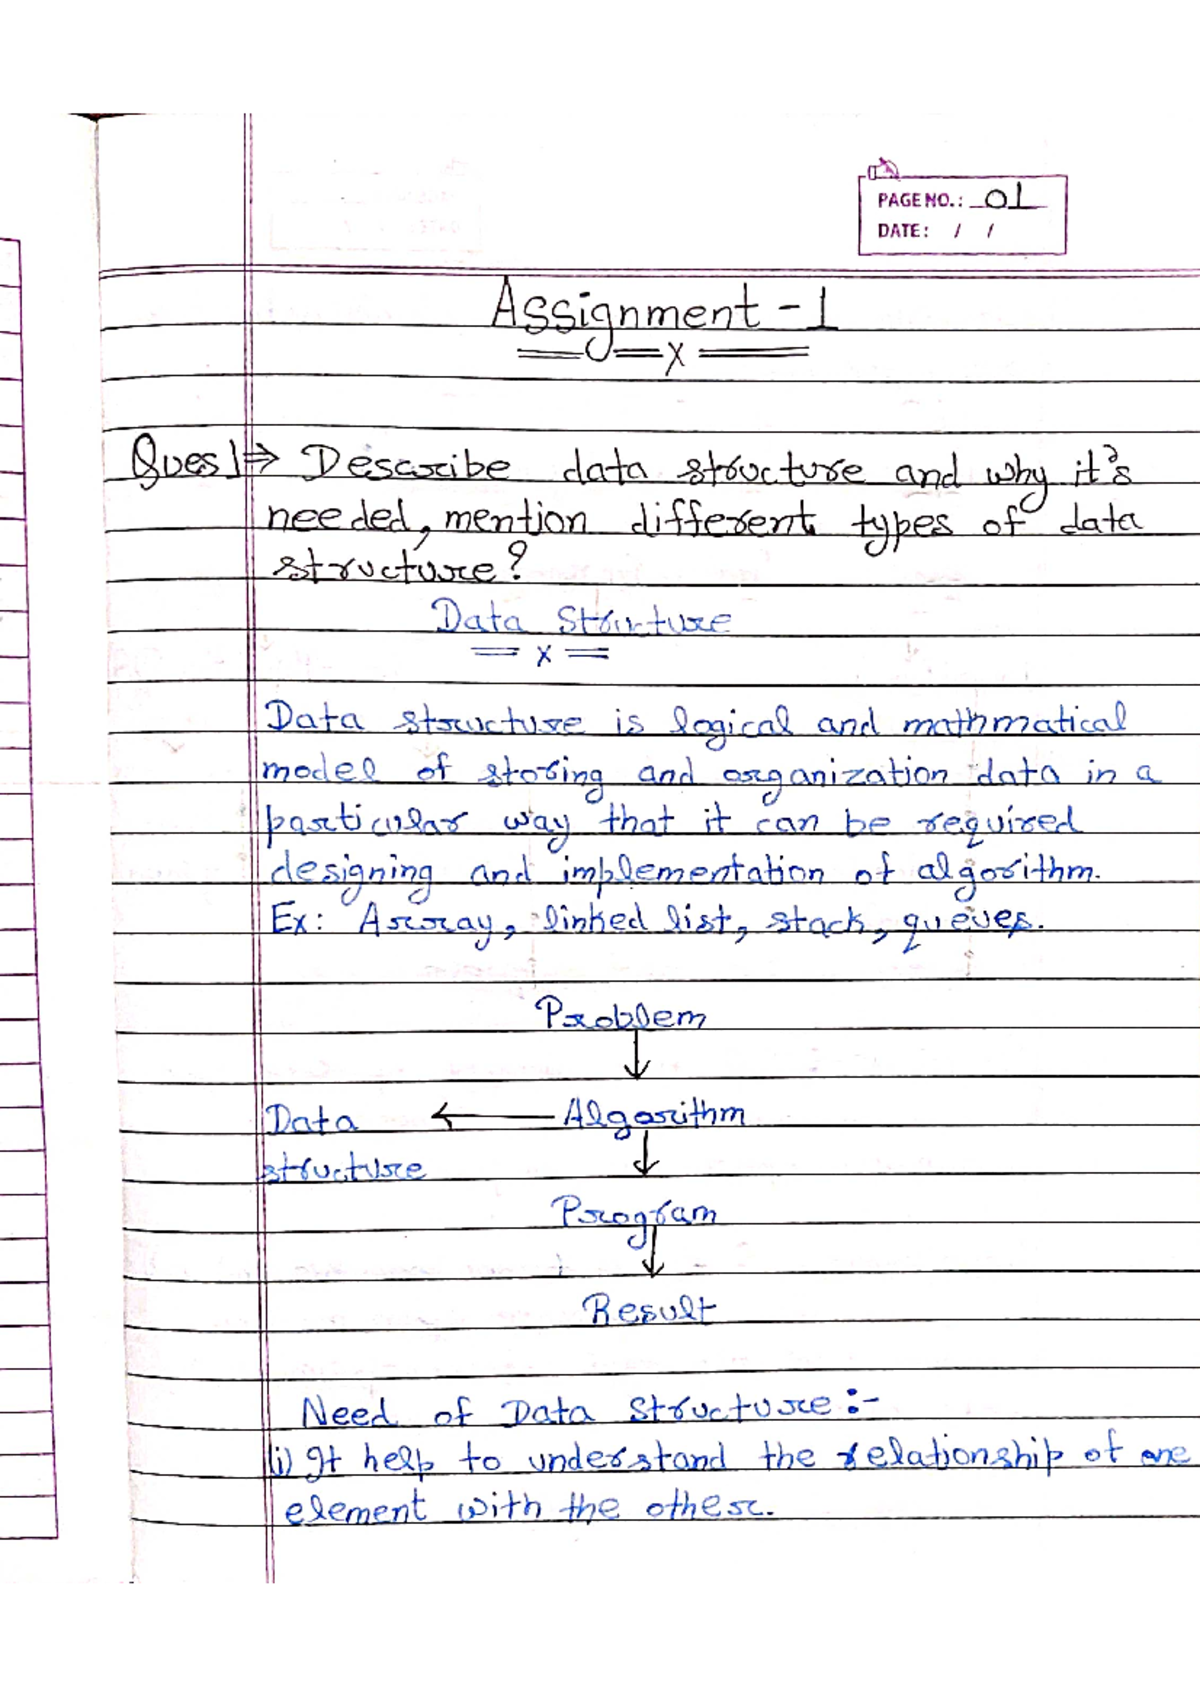 PAGE NO.: 01
DATE: / /
Assignment - 1
Ques 1⇒ Describe data structure and why it's
needed, mention different types of data
structure?
Data Structure
Data structure is logical and mathmatical
model of storing and organization data in a
particular way that it can be required
designing and implementation of algorithm.
Ex: Array, linked list, stack, queues.
Problem
↓
Data ← Algorithm
structure ↓
Program
↓
Result
Need of Data Structure :-
(i) It help to understand the relationship of one
element with the other.